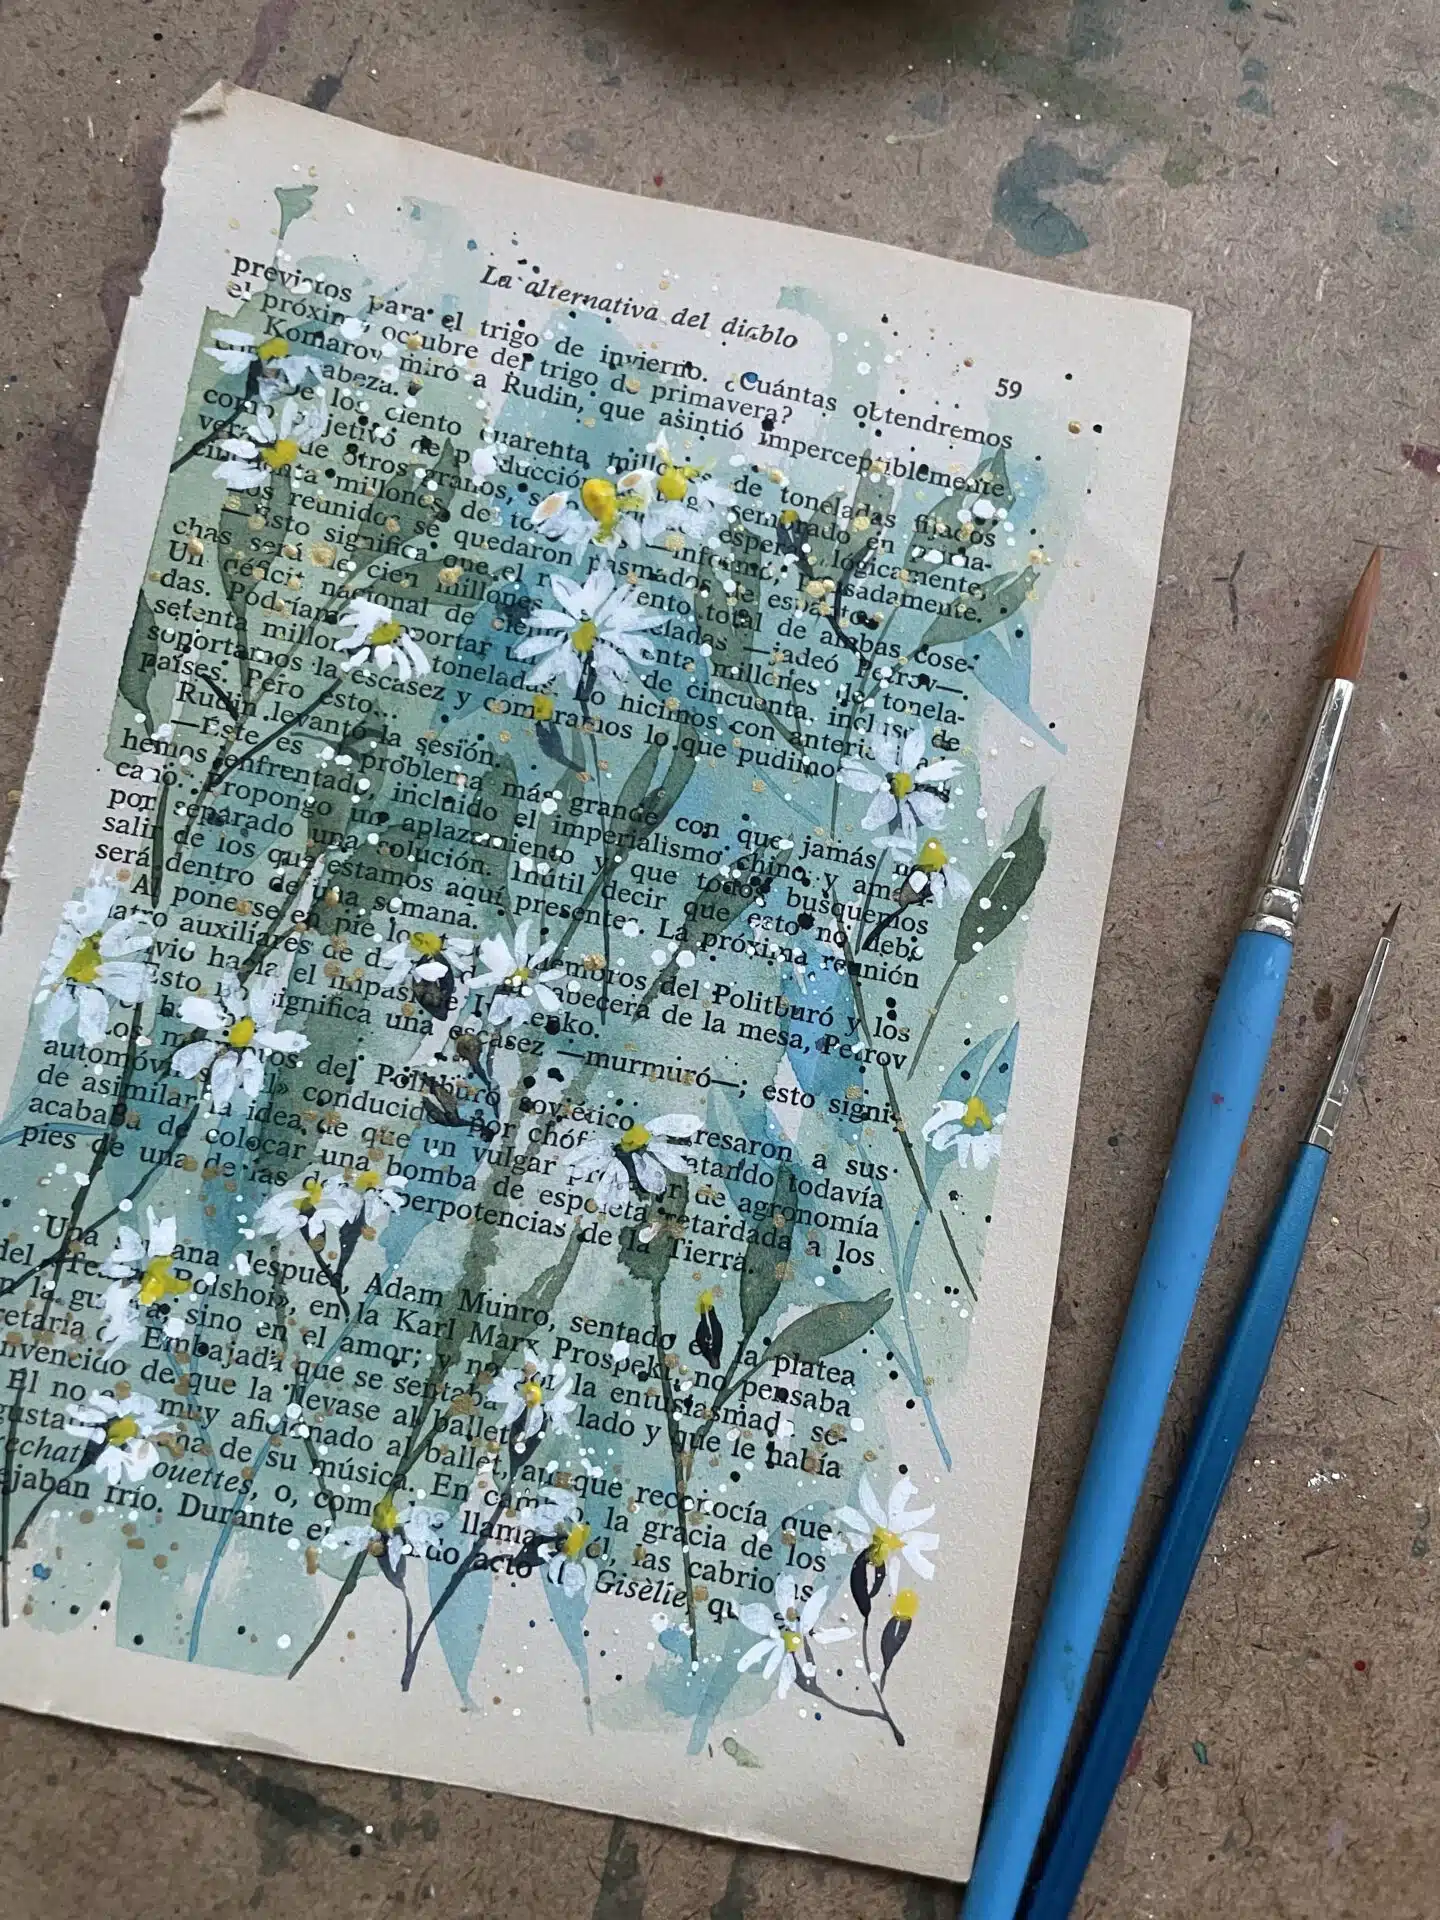 La alternativa del diablo
59
previstos para el trigo de invierno. ¿Cuántas obtendremos
el próximo octubre del trigo de primavera?
Komarov miró a Rudin, que asintió imperceptiblemente
cabeza.
—De los ciento cuarenta millones de toneladas fijados
como objetivo de producción trigo sembrado en prima-
vera de otros granos, lógicamente,
cincuenta millones de —informó, pesadamente.
Los reunidos se quedaron pasmados de espanto.
—Esto significa que el total de ambas cose-
chas será de cien millones toneladas —jadeó Petrov—.
Un déficit nacional de millones de tonela-
das. Podríamos soportar un de cincuenta, incluso de
setenta millones toneladas. Lo hicimos con
soportamos la escasez y compramos lo que pudimos
países. Pero esto...
Rudin levantó la sesión.
—Éste es problema más grande con que jamás
hemos enfrentado, incluido el imperialismo chino y
cano. Propongo un aplazamiento y que todos busquemos
por separado una solución. Inútil decir que esto no debe
salir de los que estamos aquí presentes. La próxima reunión
será dentro de una semana.
Al ponerse en pie los miembros del Politburó y los
cuatro auxiliares de cabecera de la mesa, Petrov
hacia el impasible Ivanenko.
—Esto no significa una escasez —murmuró—; esto signi-
Los del Politburó soviético regresaron a sus
automóviles conducidos por tratando todavía
de asimilar la idea de que un vulgar profesor de agronomía
acababa de colocar una bomba de espoleta retardada a los
pies de una de las dos superpotencias de la Tierra.
Una semana después, Adam Munro, sentado en la platea
del Bolshoi», en la Karl Marx Prospekt, no pensaba
en la guerra, sino en el amor; y no por la entusiasmada se-
cretaria Embajada que se sentaba lado y que le había
convencido de que la llevase al ballet.
Él no muy aficionado al ballet, aunque reconocía que
de su música. En cambio, la gracia de los
o, como los llamaba él, las cabriolas
dejaban frío. Durante el segundo acto Gisèlle, que